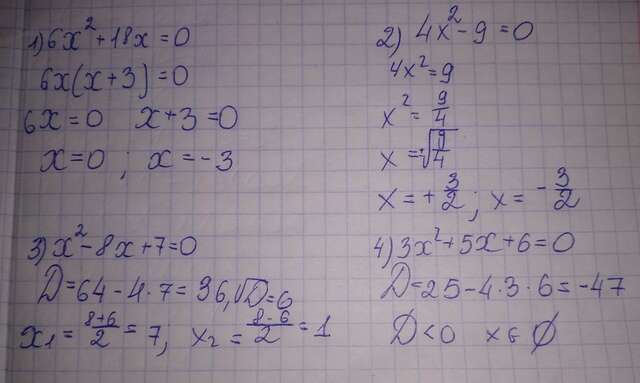 1) 6x² + 18x = 0
6x(x + 3) = 0
6x = 0 x + 3 = 0
x = 0 ; x = -3
2) 4x² - 9 = 0
4x² = 9
x² = 9/4
x = ±√(9/4)
x = + 3/2 ; x = - 3/2
3) x² - 8x + 7 = 0
D = 64 - 4 · 7 = 36, √D = 6
x₁ = (8+6)/2 = 7 ; x₂ = (8-6)/2 = 1
4) 3x² + 5x + 6 = 0
D = 25 - 4 · 3 · 6 = -47
D < 0 x ∈ ∅